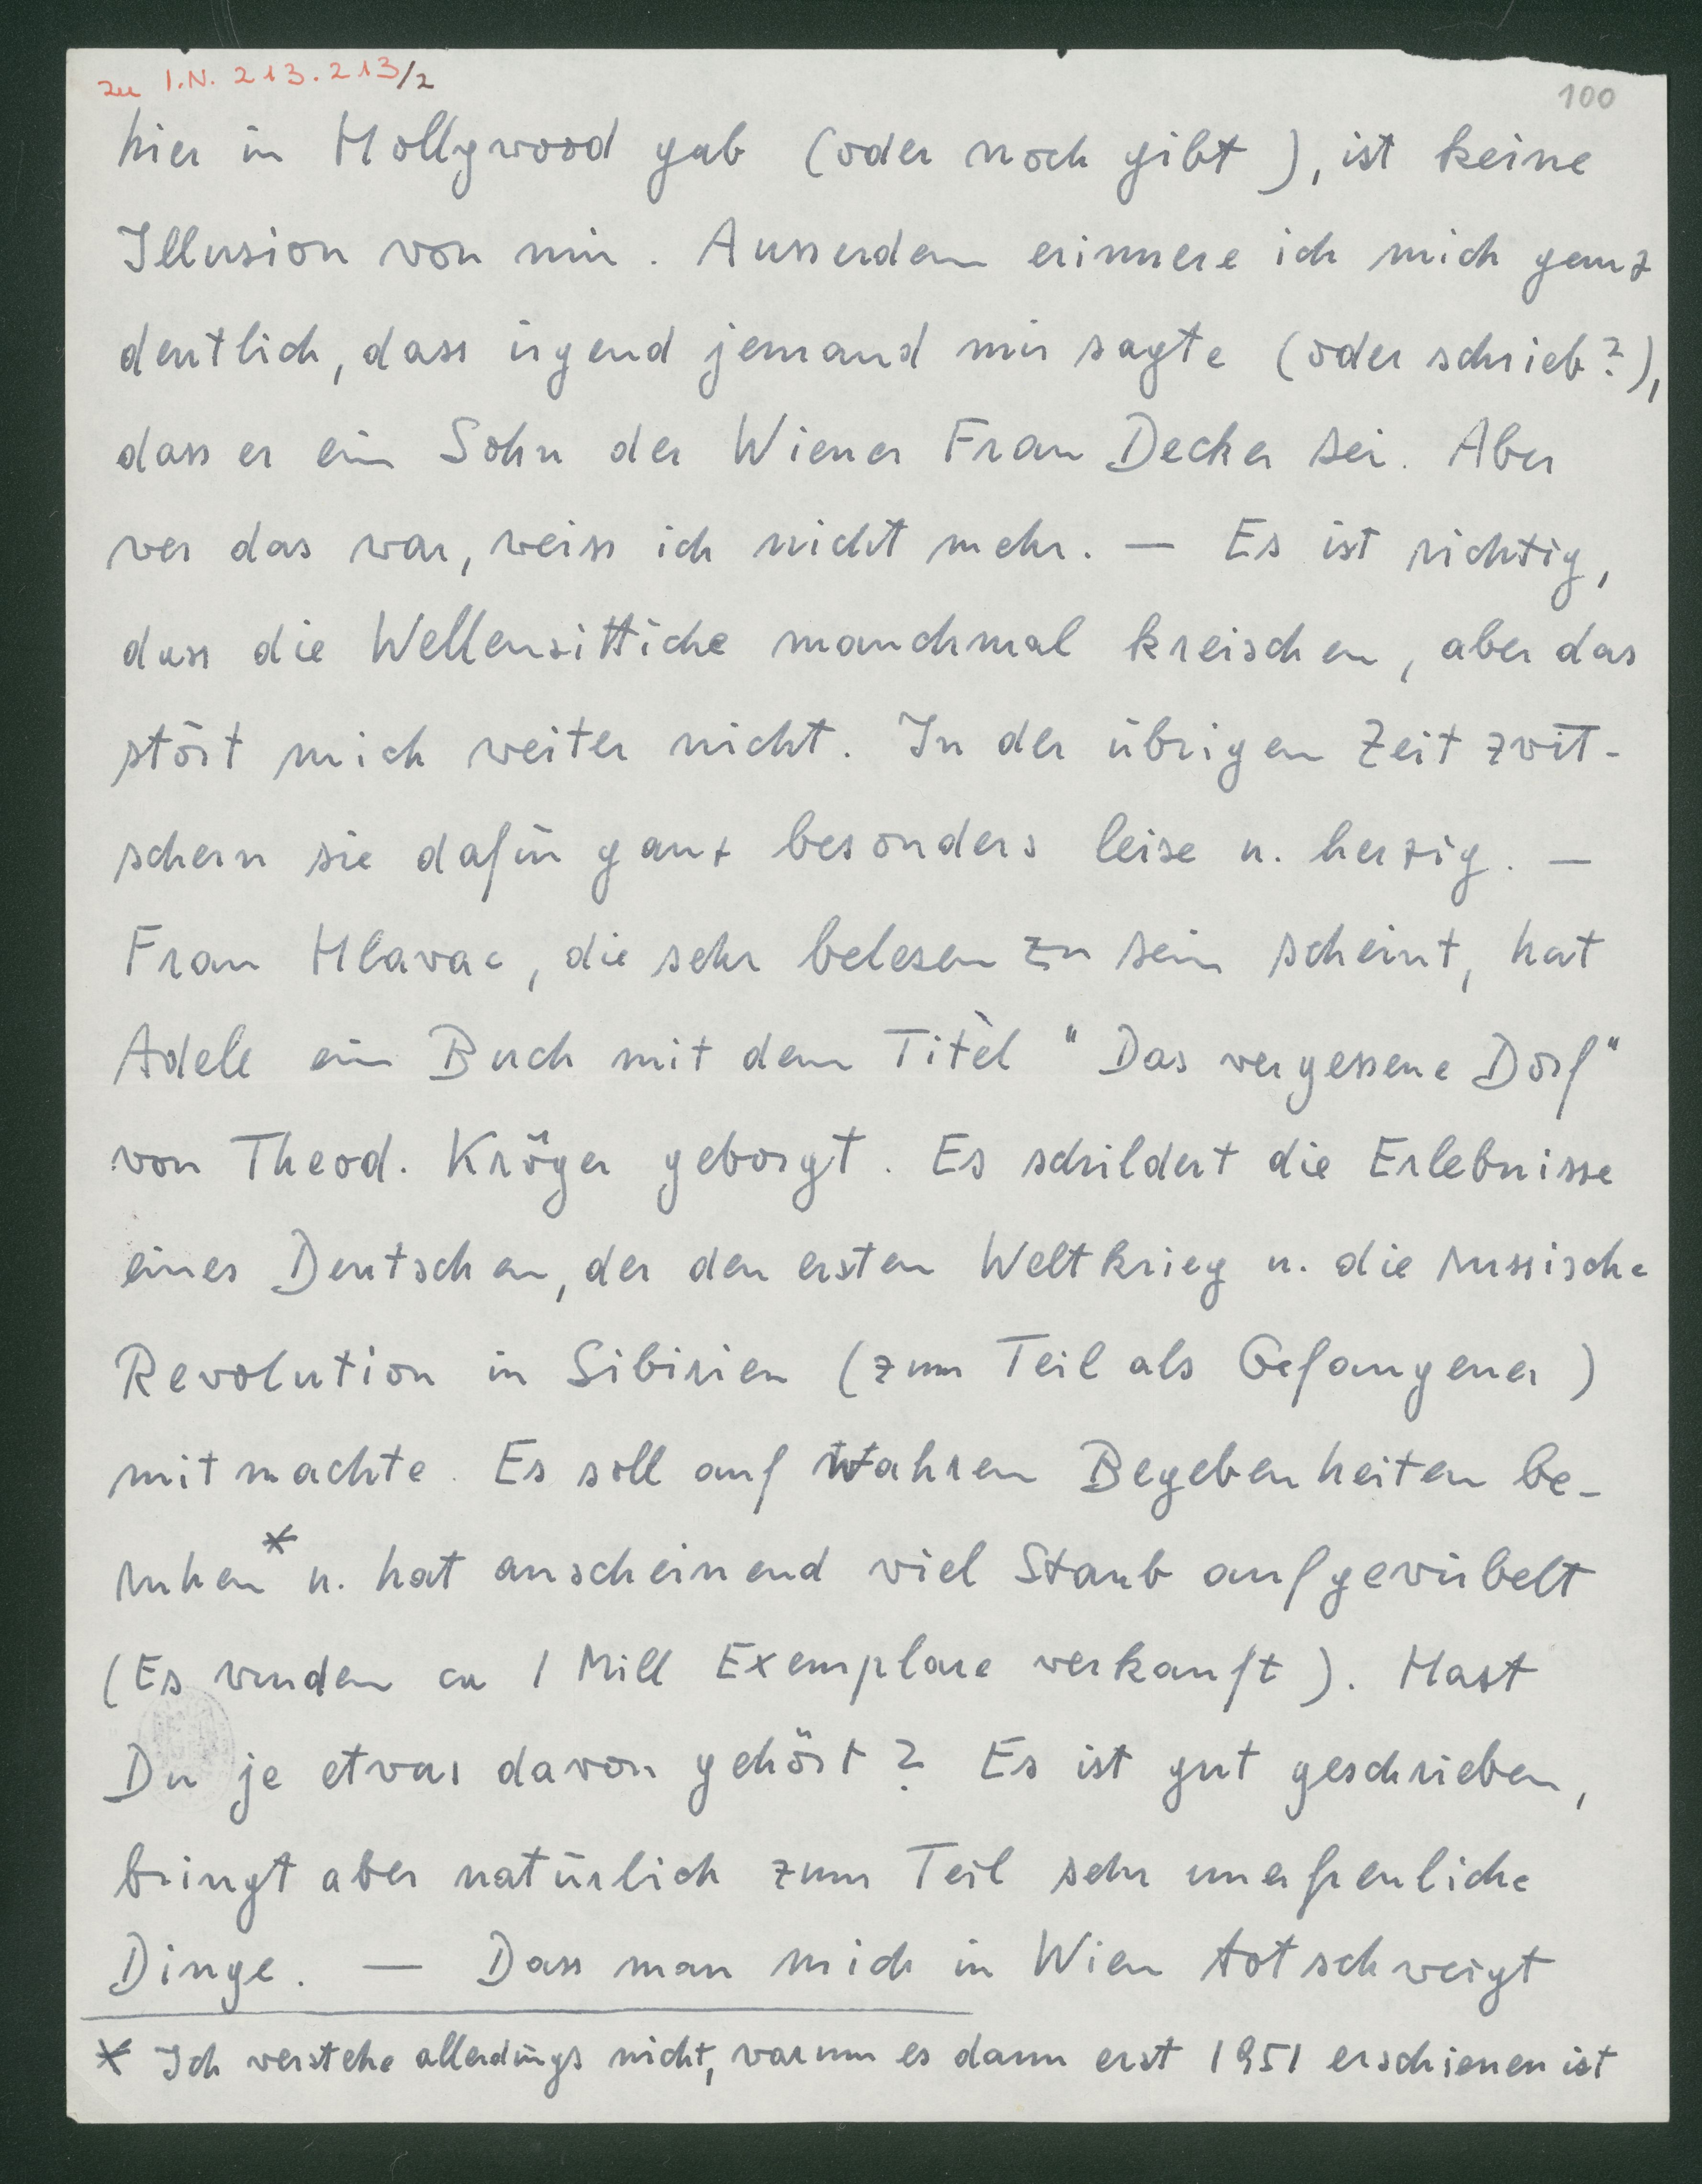 zu I.N. 213.213/2
100
hier in Hollywood gab (oder noch gibt), ist keine
Illusion von mir. Ausserdem erinnere ich mich ganz
deutlich, dass irgend jemand mir sagte (oder schrieb?),
dass er ein Sohn der Wiener Frau Decker sei. Aber
wer das war, weiss ich nicht mehr. — Es ist richtig,
dass die Wellensittiche manchmal kreischen, aber das
stört mich weiter nicht. In der übrigen Zeit zwit-
schern sie dafür ganz besonders leise u. herzig. —
Frau Hlavac, die sehr belesen zu sein scheint, hat
Adele ein Buch mit dem Titel "Das vergessene Dorf"
von Theod. Kröger geborgt. Es schildert die Erlebnisse
eines Deutschen, der den ersten Weltkrieg u. die russische
Revolution in Sibirien (zum Teil als Gefangener)
mitmachte. Es soll auf wahren Begebenheiten be-
ruhen* u. hat anscheinend viel Staub aufgewirbelt
(Es wurden ca 1 Mill Exemplare verkauft). Hast
Du je etwas davon gehört? Es ist gut geschrieben,
bringt aber natürlich zum Teil sehr unerfreuliche
Dinge. — Dass man mich in Wien totschweigt
* Ich verstehe allerdings nicht, warum es dann erst 1951 erschienen ist